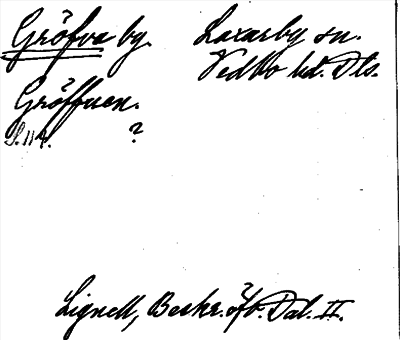 Gröfva by. Laxarby sn.
Vedbo hd. Dls.
Gröffuen.
S. 114. ?
Lignell, Beskr. öfv. Dal. II.